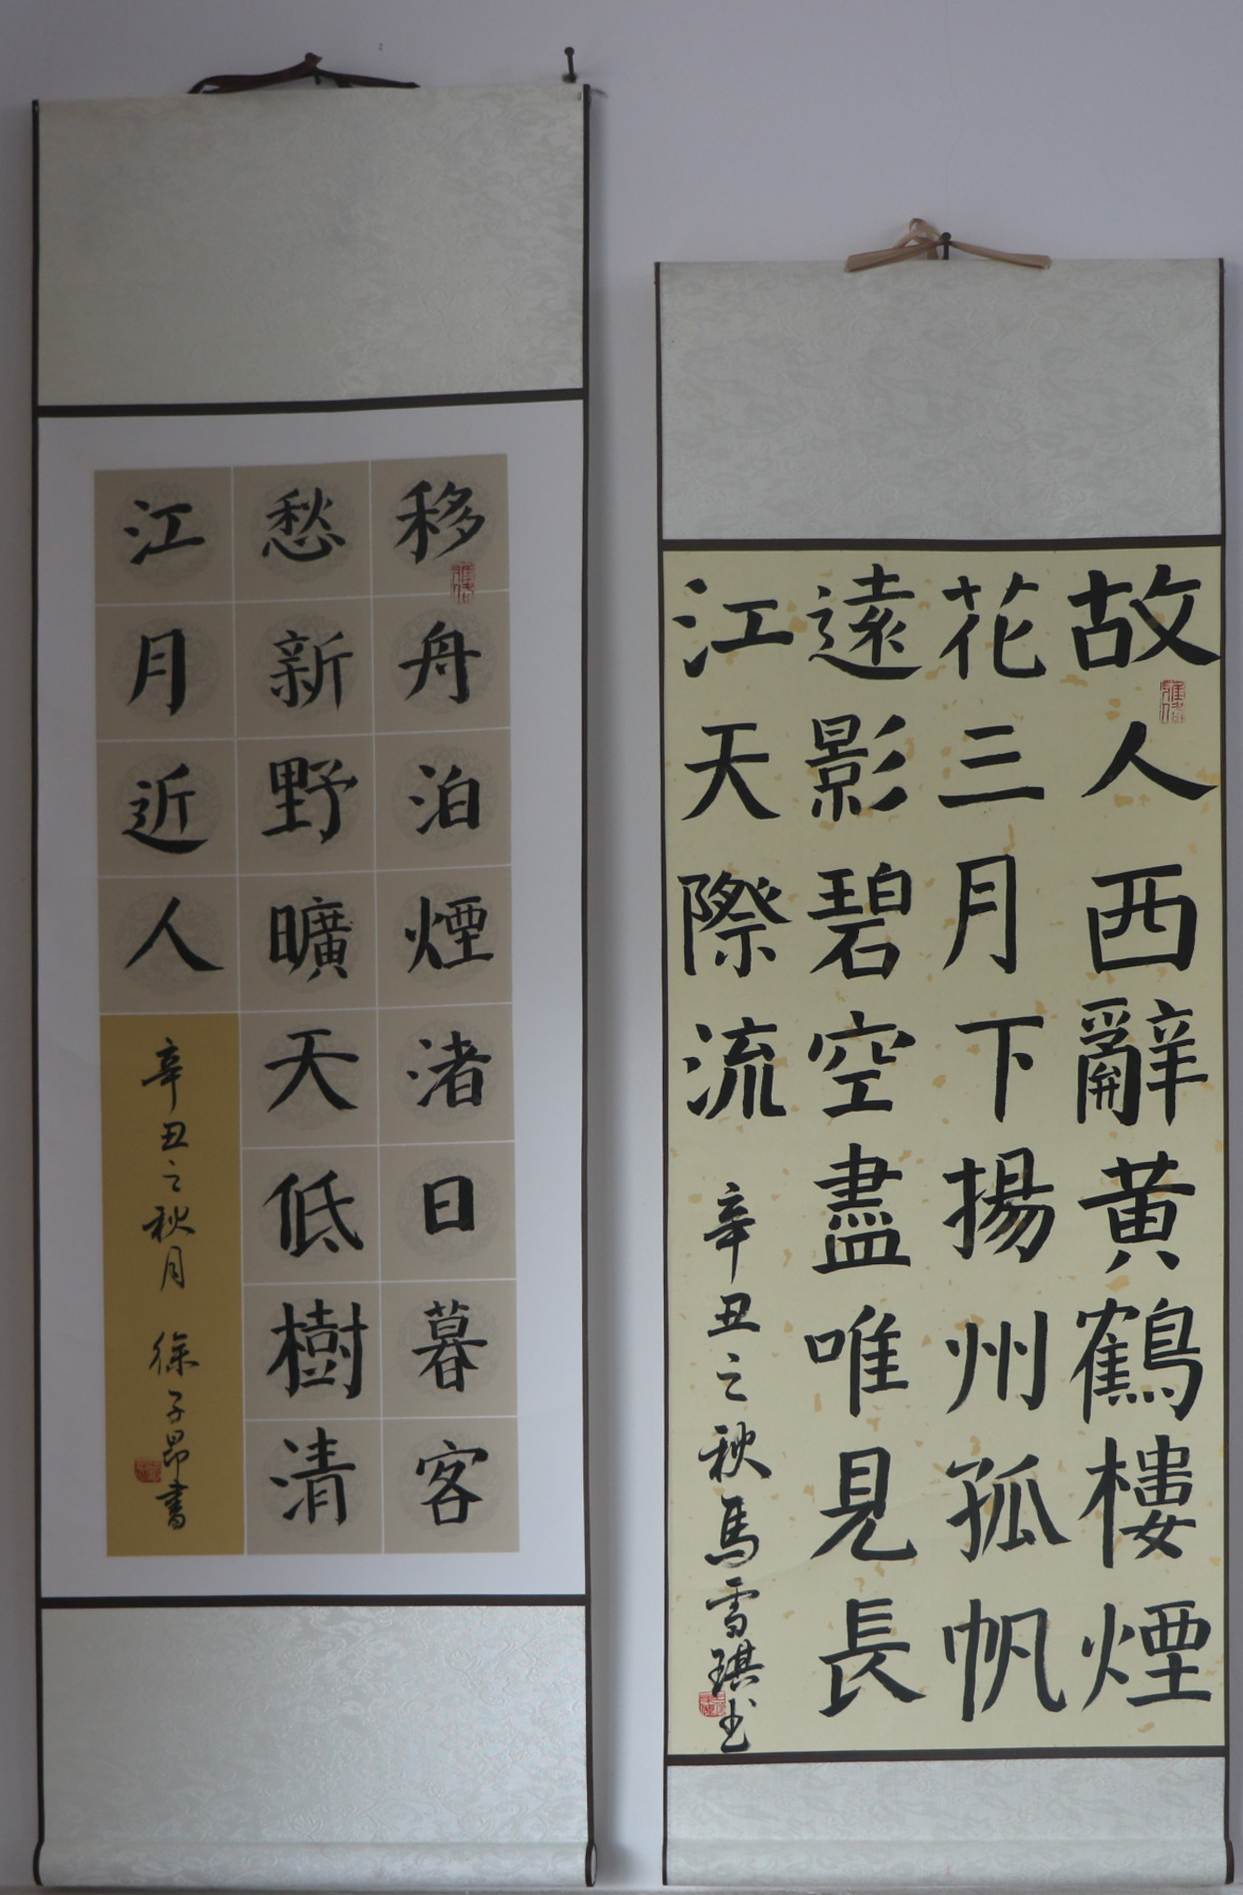 移舟泊煙渚日暮客
愁新野曠天低樹清
江月近人
辛丑之秋月 徐子昂書
故人西辭黃鶴樓煙
花三月下揚州孤帆
遠影碧空盡唯見長
江天際流
辛丑之秋馬雪琪书